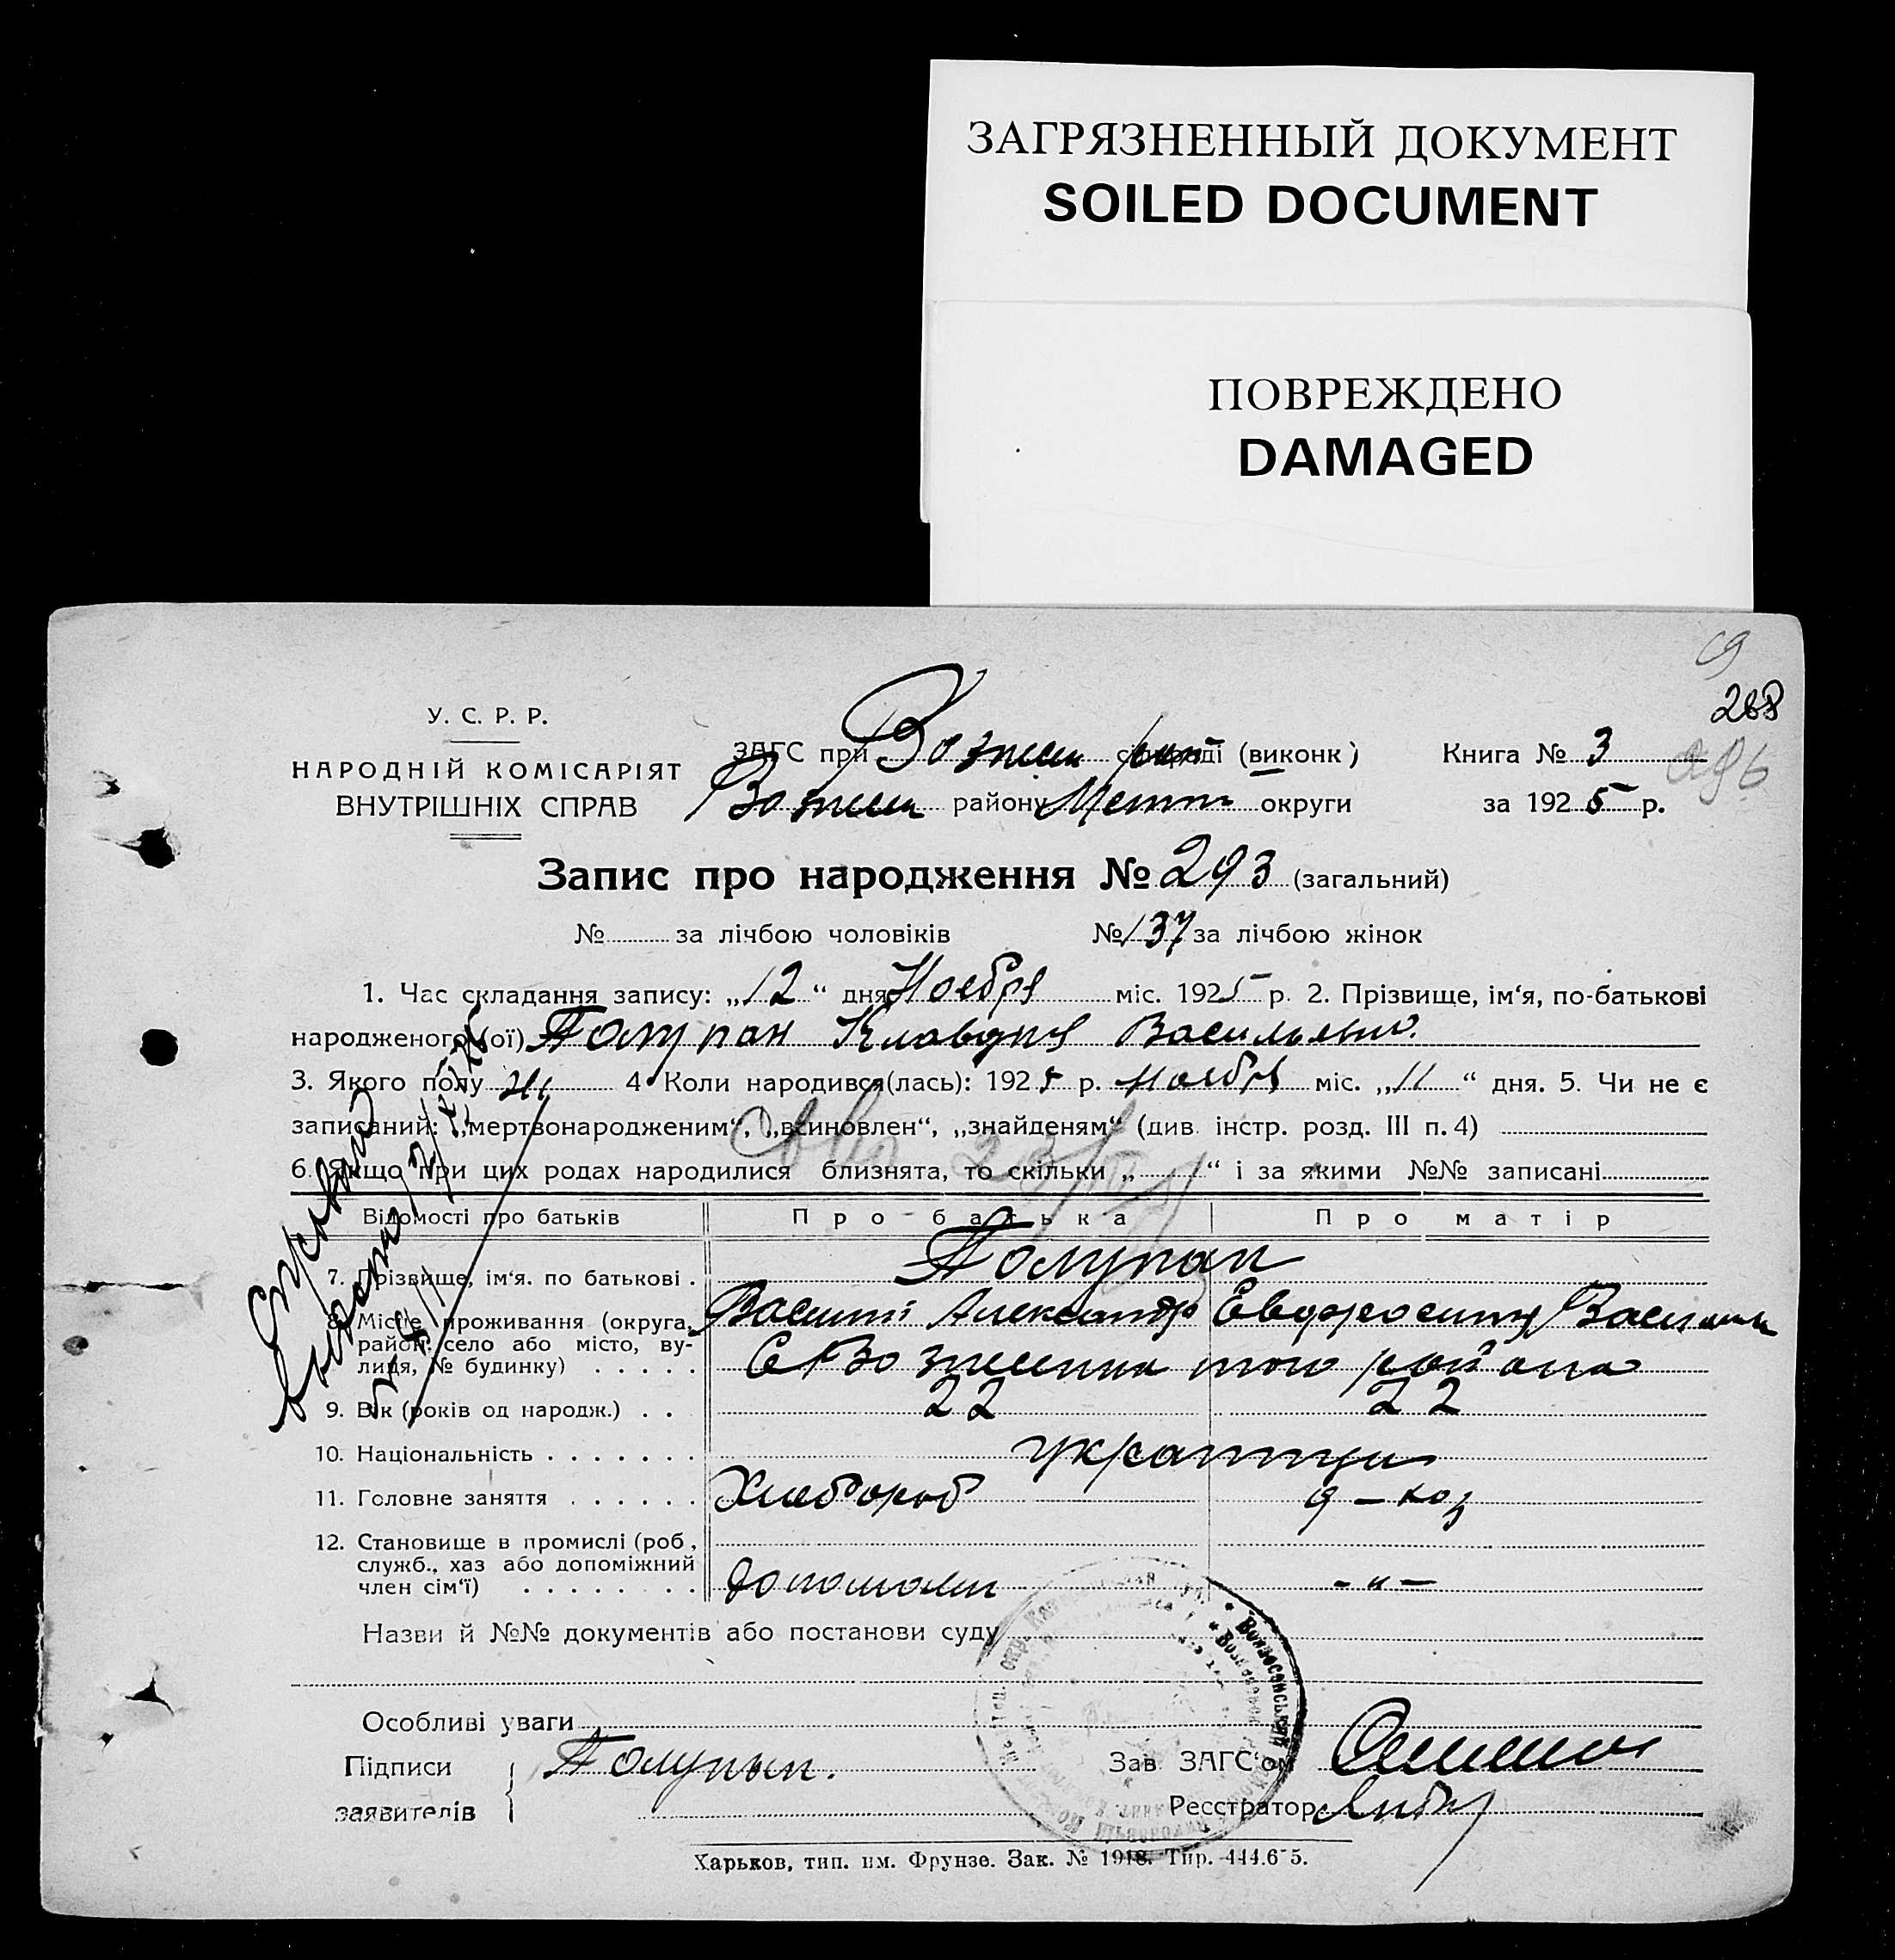 ЗАГРЯЗНЕННЫЙ ДОКУМЕНТ
SOILED DOCUMENT
ПОВРЕЖДЕНО
DAMAGED
268
У. С. Р. Р.
НАРОДНІЙ КОМІСАРІЯТ
ВНУТРІШНІХ СПРАВ
ЗАГС при Вознесен рай сільраді (виконк) Книга № 3
району округи за 1925 р.
Запис про народження № 293 (загальний)
№ за лічбою чоловіків № 137 за лічбою жінок
1. Час складання запису: „12“ дня Ноября міс. 1925 р. 2. Прізвище, ім‘я, по-батькові
народженого (ої) Полупан Клавдия Васильевн.
3. Якого полу Ж 4 Коли народився(лась): 1925 р. Ноября міс. „11“ дня. 5. Чи не є
записаний: „мертвонародженим“, „всиновлен“, „знайденям“ (див. інстр. розд. III п. 4)
6. Якщо при цих родах народилися близнята, то скільки „ “ і за якими №№ записані
Відомості про батьків Про батька Про матір
7. Прізвище, ім‘я. по батькові . Полупан
Василий Александр Евдросиния Василь
8. Місце проживання (округа,
район. село або місто, ву-
лиця, № будинку) . . . . . С Вознесенка того района
9. Вік (років од народж.) . . 22 22
10. Національність . . . . . . . украинцы
11. Головне заняття . . . . . . Хлебороб д - хоз
12. Становище в промислі (роб.,
служб., хаз або допоміжний
член сім‘ї) . . . . . . . . допомогн - „ -
Назви й №№ документів або постанови суду
Особливі уваги
Підписи Полупан.
заявителів
Зав. ЗАГС‘ом
Реєстратор
Харьков, тип. им. Фрунзе. Зак. № 1918. Тир. 444.675.